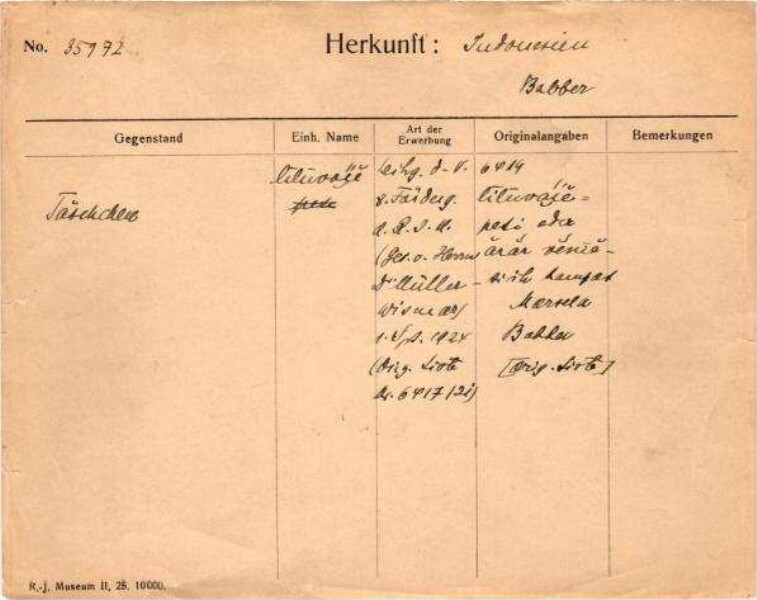 No. 35972 Herkunft: Indonesien
Babber
Gegenstand
Einh. Name
Art der
Erwerbung
Originalangaben
Bemerkungen
Täschchen
lituvāje
Leihg. d. V.
z. Förderg.
d. R. J. M.
(Ges. v. Herrn
Dr Müller-
Wismar)
1924
(Orig. Liste
lituvāje =
peti oder
ārār
Marsela
Babber
[Orig. Liste]
R.-J. Museum II, 25. 10000.